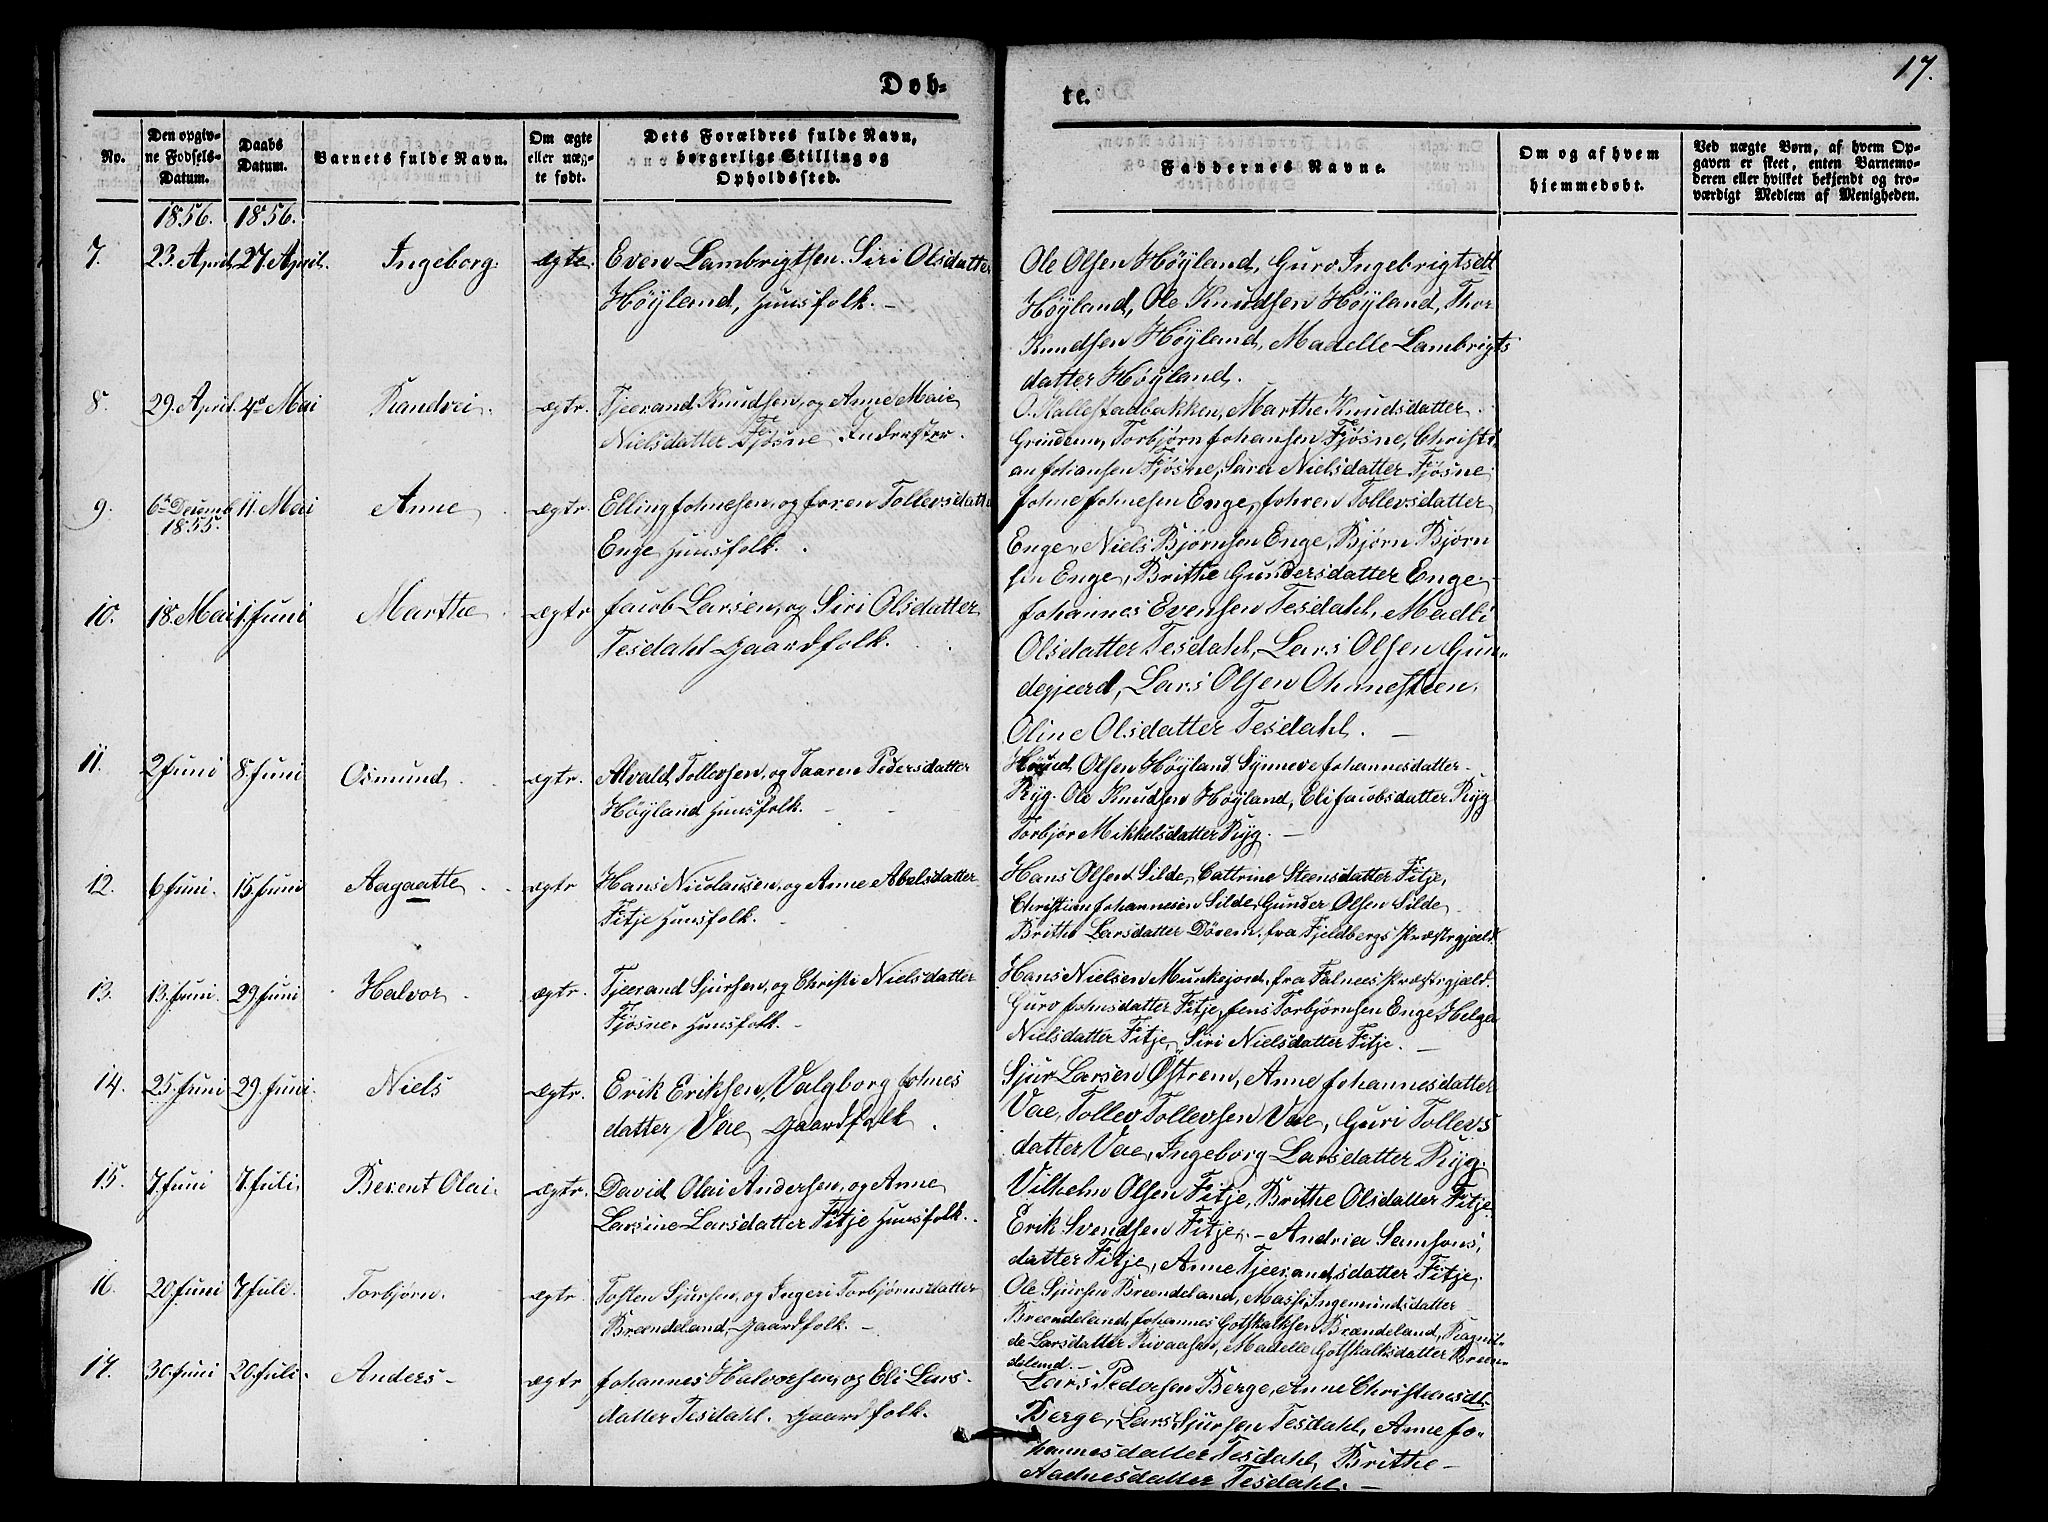 Døb-
te.
17.
No.
Den opgiv-
ne Fødsels-
Datum.
Daabs
Datum.
Barnets fulde Navn.
Om ægte
eller uæg-
te født.
Dets Forældres fulde Navn,
borgerlige Stilling og
Opholdssted.
Faddernes Navne.
Om og af hvem
hjemmedøbt.
Ved uægte Børn, af hvem Op-
gaven er skeet, enten Barnemo-
deren eller hvilket bekjendt og tro-
værdigt Medlem af Menigheden.
1856. 1856.
7. 23. April 27 April. Ingeborg. ægte. Even Lambrigtsen. Siri Olsdatter
Høyland, Huusfolk. –
Ole Olsen Høyland, Guro Ingebrigtsdtt
Høyland, Ole Knudsen Høyland, Thor
Knudsen Høyland, Madelle Lambrigts
datter Høyland.
8. 29. April. 4de Mai Randvei. ægtr. Tjerand Knudsen, og Anne Marie
Nielsdatter Fjøsne, Inderster.
O. Kallestadbakken, Marthe Knudsdatter
Grindem, Torbjørn Johansen Fjøsne, Christi
an Johansen Fjøsne, Sara Nielsdatter Fjøsne.
9. 6te Decemb 11. Mai Anne ægtr. Elling Johnesen, og Joren Tollevsdatter
1855.
Enge Huusfolk.
Johne Johnesen Enge, Johren Tollevsdatter
Enge, Niels Bjørnsen Enge, Bjørn Bjørn
sen Enge, Brithe Gundersdatter Enge.
10. 18. Mai 1. Juni Martha ægtr Jacob Larsen, og Siri Olsdatter
Tesdahl Gaardfolk.
Johannes Evensen Tesdahl, Madli
Olsdatter Tesdahl, Lars Olsen Gun-
degjeerd, Lars Olsen
Oline Olsdatter Tesdahl. –
11. 2 Juni 8. Juni Osmund. ægtr. Alvald Tollevsen, og Taaren Pedersdatter
Høyland Huusfolk. –
Olsen Høyland, Synneve Johannesdatter
Ryg. Ole Knudsen Høyland, Eli Jacobsdatter Ryg
Torbjør Mikkelsdatter Ryg. –
12. 6 Juni. 15 Juni Aagaatte. ægtr Hans Nicolausen, og Anne Abelsdatter
Fitje Huusfolk. –
Hans Olsen Silde, Cattrine Steensdatter Fitje,
Christian Johannesen Silde, Gunder Olsen Silde
Brithe Larsdatter Døvem. fra Fjeldbergs Præstegjæld.
13. 13. Juni. 29 Juni Halvor. ægtr. Tjerand Sjursen, og Christi Nielsdatter
Fjøsne, Huusfolk. –
Hans Nielsen Munkejord, fra Falnees Præstegjæld.
Guro Johnsdatter Fitje, Jens Torbjørnsen Enge, Helga
Nielsdatter Fitje, Siri Nielsdatter Fitje. –
14. 25 Juni 29. Juni. Niels ægtr. Erik Eriksen, Valgborg Johnes
datter Vae, Gaardfolk.
Sjur Larsen Østrem, Anne Johannesdatter
Vae, Tollev Tollevsen Vae, Guri Tollevs
datter Vae, Ingeborg Larsdatter Ryg.
15. 7. Juni 7. Juli. Berent Olai. ægtr. David Olai Andersen, og Anne
Larsine Larsdatter Fitje Huusfolk.
Vilhelm Olsen Fitje, Brithe Olsdatter Fitje.
Erik Svendsen Fitje, – Andria Samsons,
datter Fitje, Anne Tjerandsdatter Fitje.
16. 20 Juni 7 Juli. Torbjørn. ægtr. Tosten Sjursen, og Ingeri Torbjørnsdatter
Brændeland, Gaardfolk. –
Ole Sjursen Brændeland, Massi Ingemundsdatter
Brændeland, Johannes Gotskalksen Brændeland, Ragnil-
de Larsdatter Rivaasen, Madelle Gotskalksdatter Bræn-
deland. –
17. 30. Juni 20. Juli. Anders – ægtr Johannes Halvorsen, og Eli Lars-
datter Tesdahl. Gaardfolk.
Lars Pedersen Berge, Anne Christiansdt.
Berge, Lars Sjursen Tesdahl, Anne Jo-
hannesdatter Tesdahl, Brithe –
Aadnesdatter Tesdahl. –